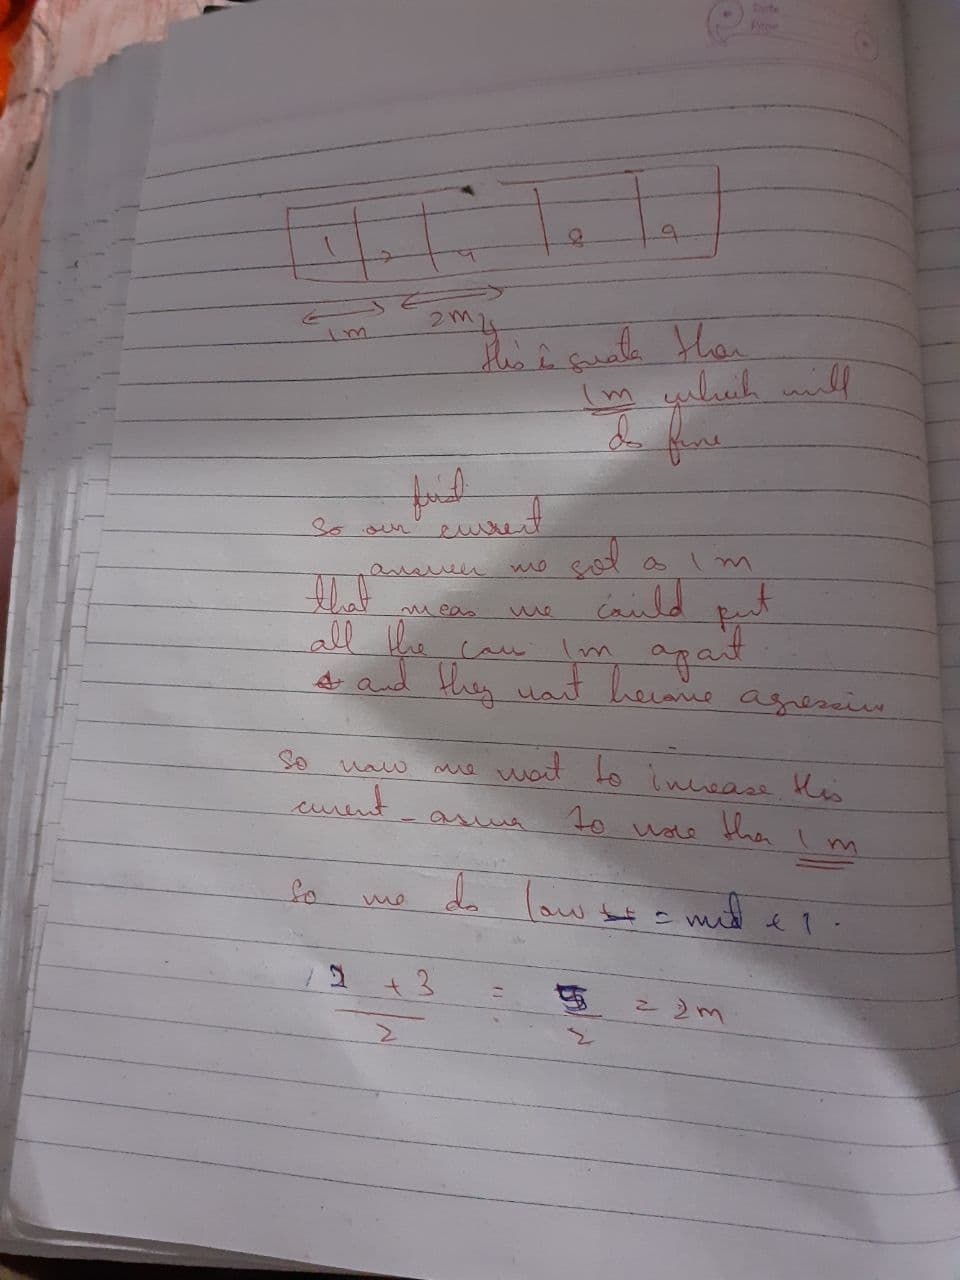 Date
Page
1 2 4 8 9
1m 2m
this is greate than
1m which will
do fine
first
So our current
answer we got as 1m
that meas we could put
all the cows 1m apart
and they wont become agressive
So now we wait to increase this
curent - answer to more tha 1m
So we do low = mid + 1.
2 + 3 = 5 = 2m
2 2